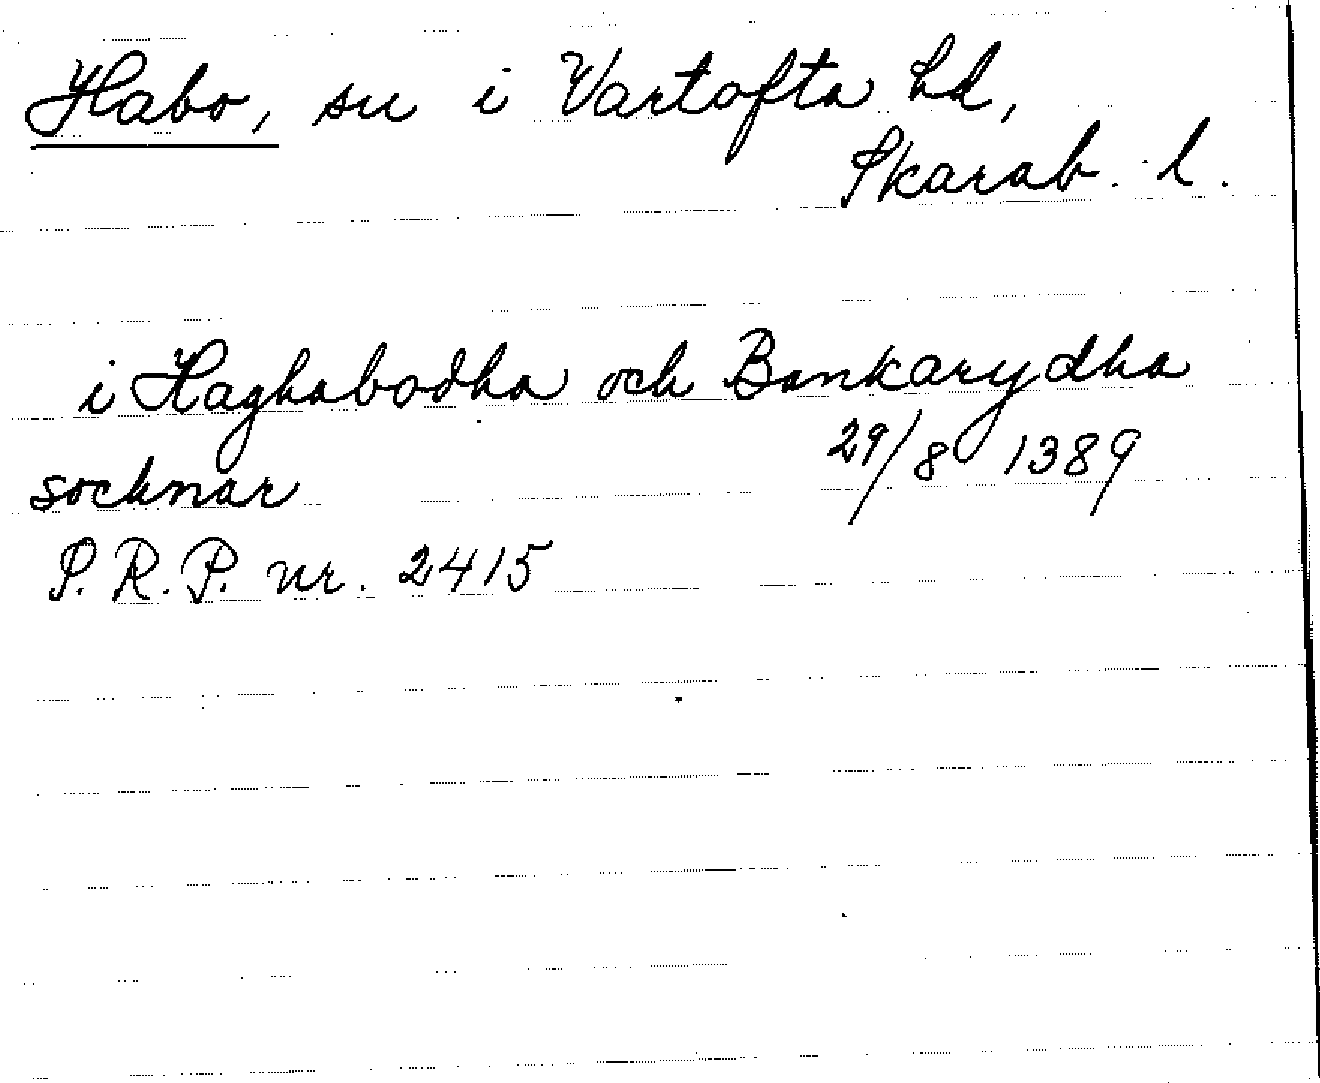 Habo, sn i Vartofta hd,
Skarab. l.
i Haghabodha och Bankarydha
29/8 1389
socknar
S.R.P. nr. 2415